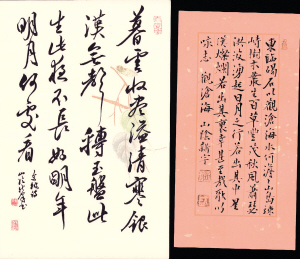 東臨碣石以觀滄海水何澹澹山島竦
峙樹木叢生百草豐茂秋風蕭瑟
洪波湧起日月之行若出其中星
漢燦爛若出其裏幸甚至哉歌以
詠志 觀滄海
暮雲收盡溢清寒銀
漢無聲轉玉盤此
生此夜不長好明年
明月何處看